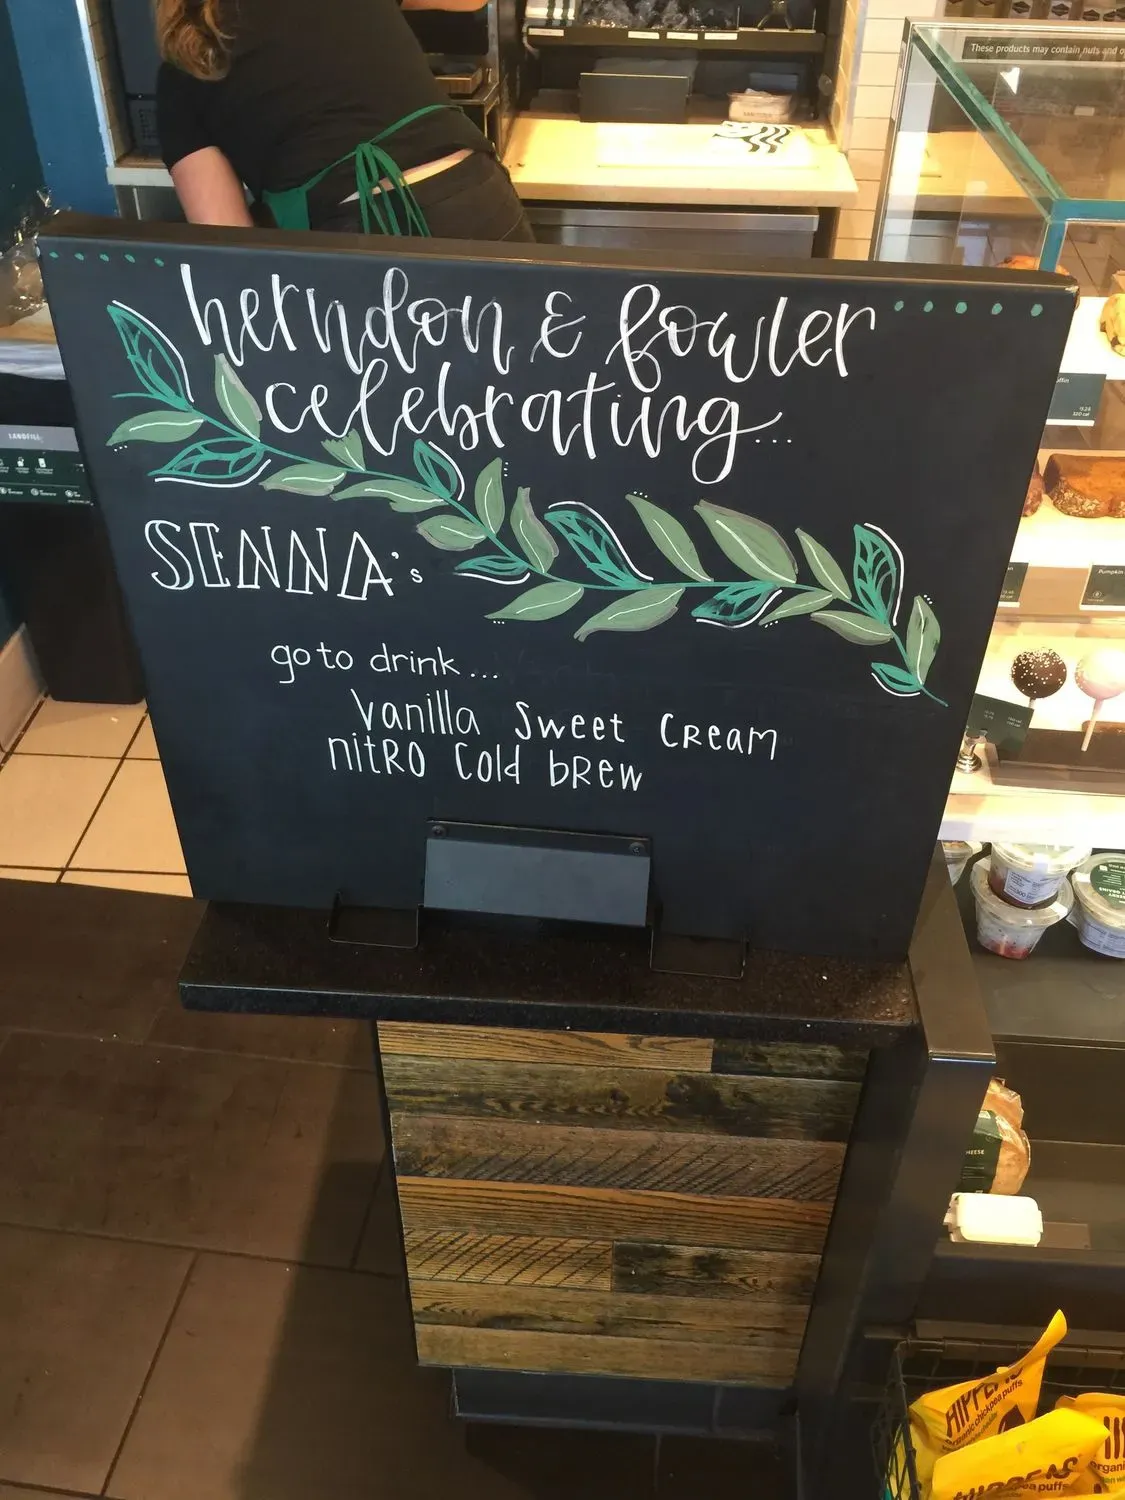 These products may contain nuts and
herndon & fowler
celebrating...
SENNA's
go to drink...
Vanilla Sweet Cream
nitro Cold brew
LANDFILL
Pumpkin
CHEESE
HIPPEAS
organic chickpea puffs
HIPPEAS